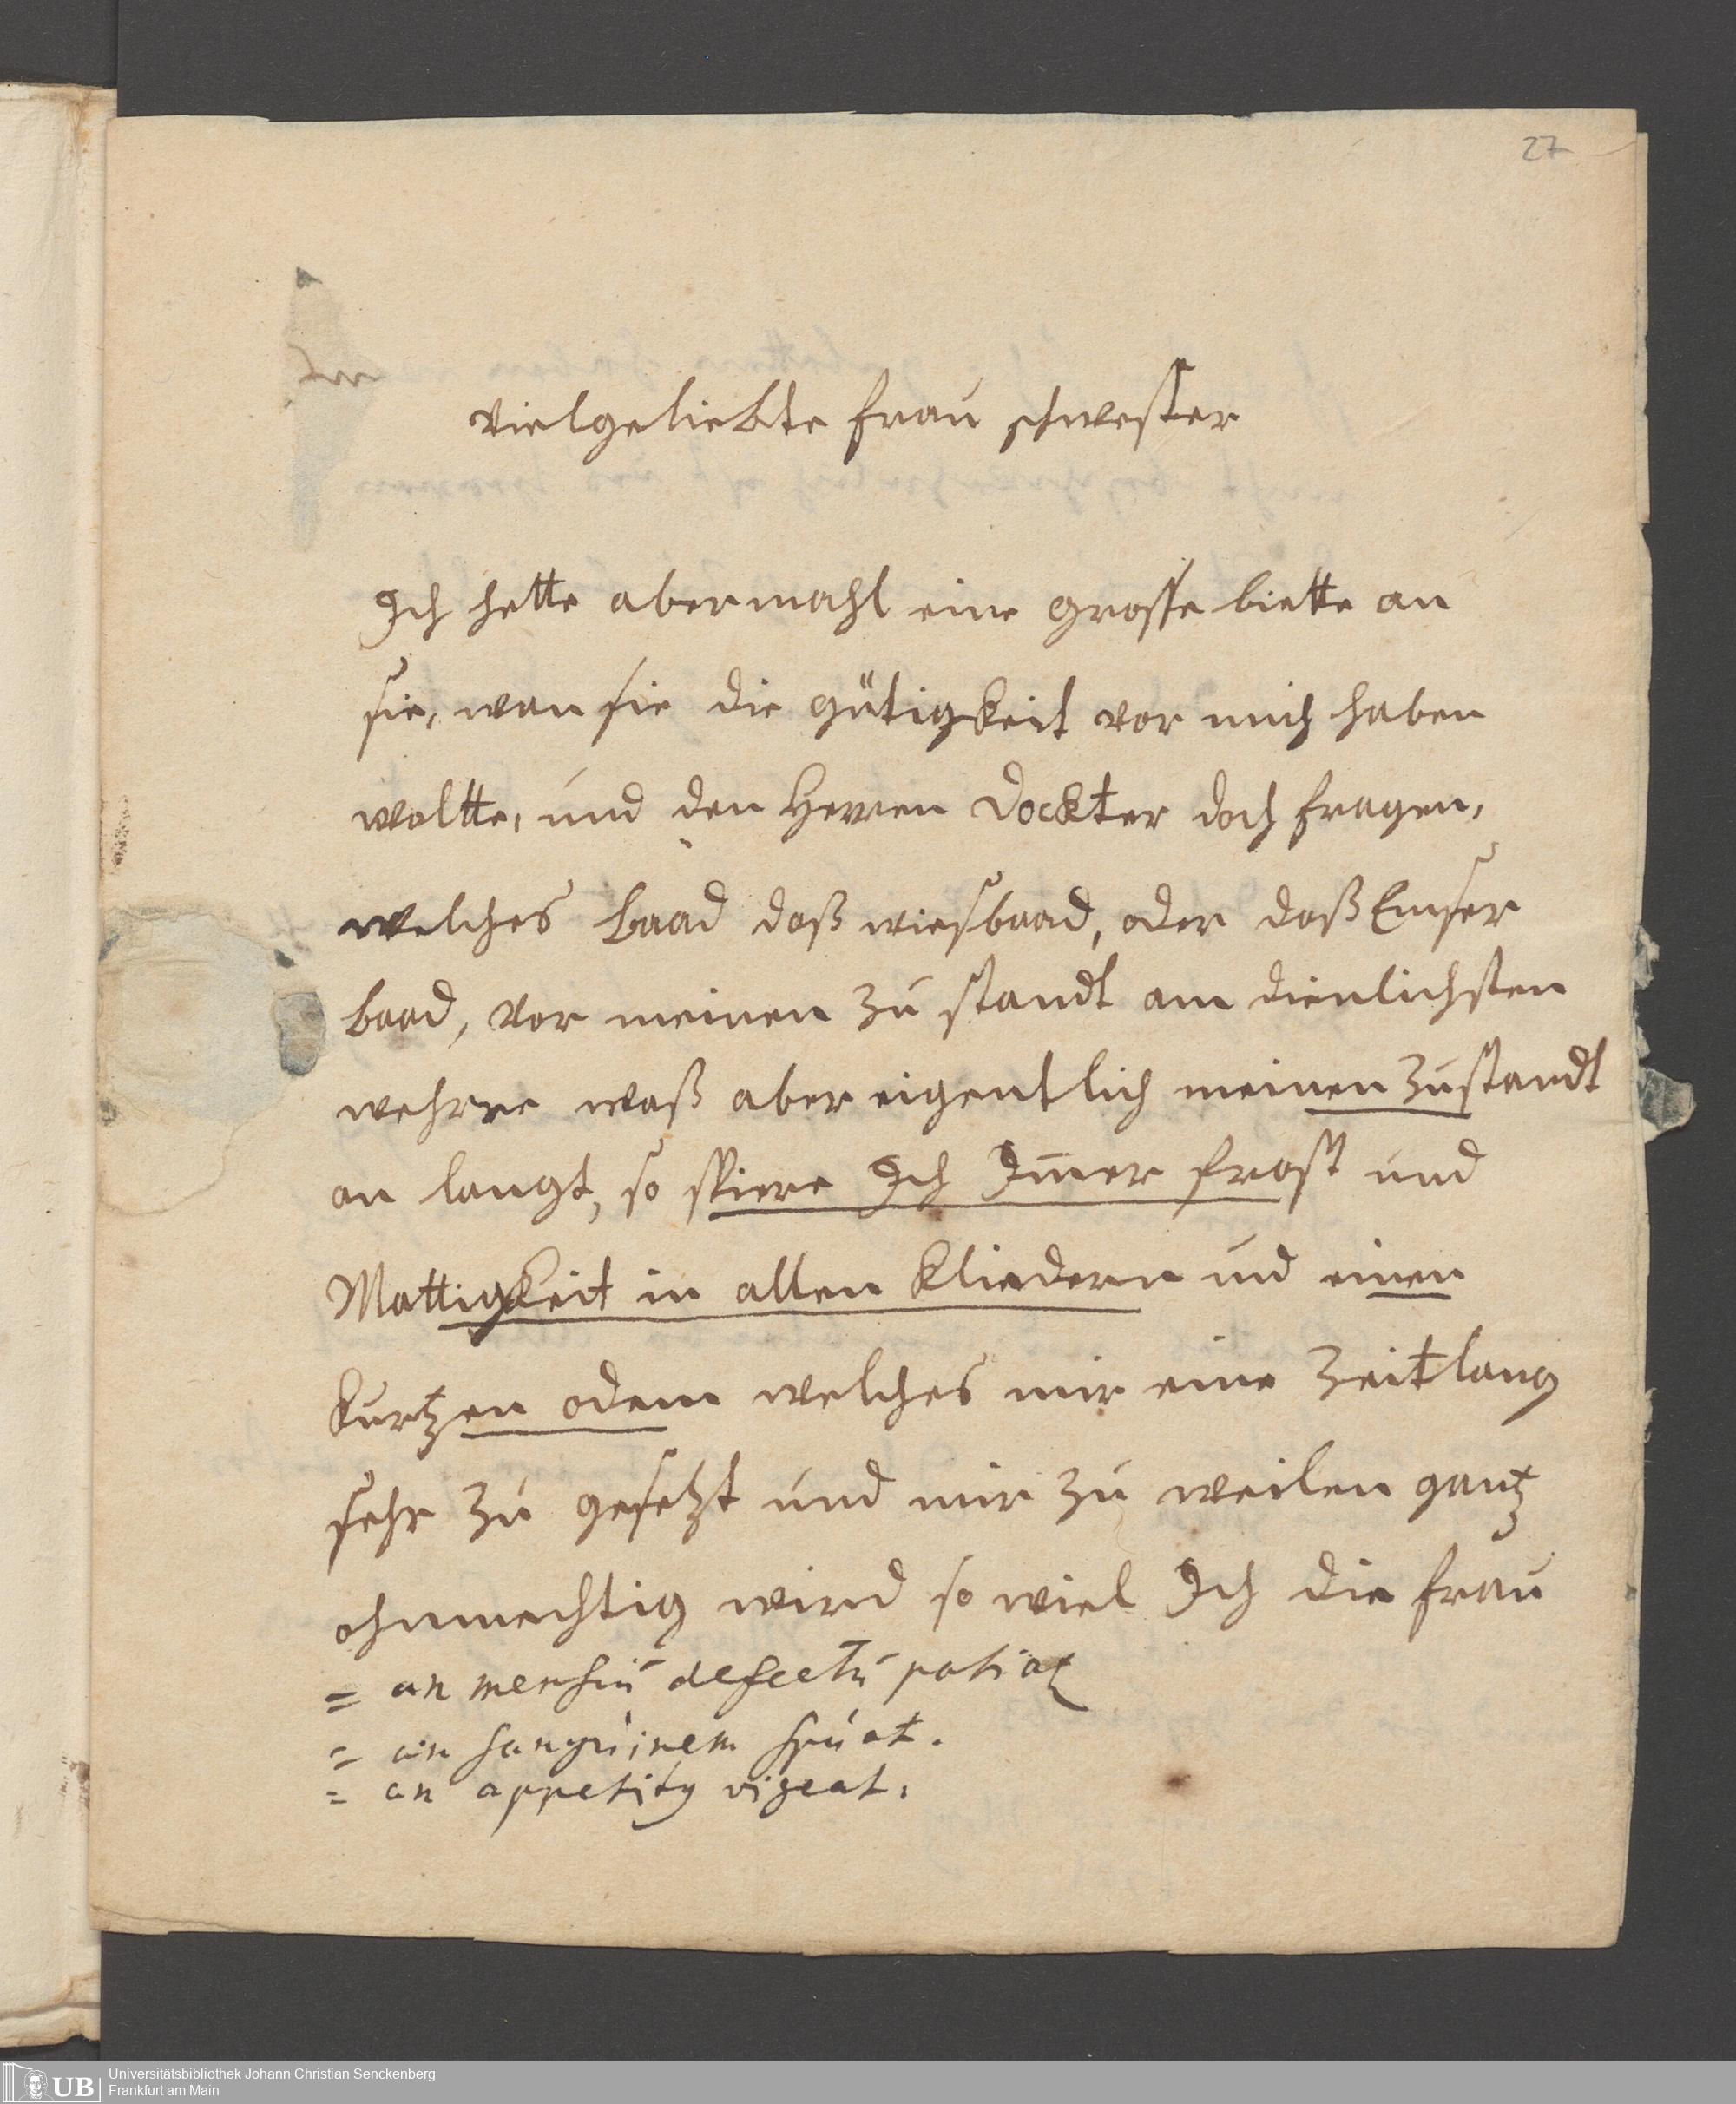 27
vielgeliebte frau schwester
Ich hette abermahl eine grosse biette an
sie, wan sie die gütigkeit vor mich haben
woltte, und den Herren Dockter doch fragen,
welches baad daß wiesbaad, oder daß Emser
baad, vor meinen zu standt am dienlichsten
wehrre waß aber eigentlich meinen zustandt
an langt, so spiere Ich Im̅er frost und
Mattigkeit in allen kliedern und einen
kurtzen odem welches mir eine zeitlang
sehr zu gesetzt und mir zu weilen gantz
ohnmechtig wird so wiel Ich die frau
= an mensiu̅ defectu̅ patiat
= an sanguinem spuat.
= an appetity vigeat.
UB Universitätsbibliothek Johann Christian Senckenberg
Frankfurt am Main